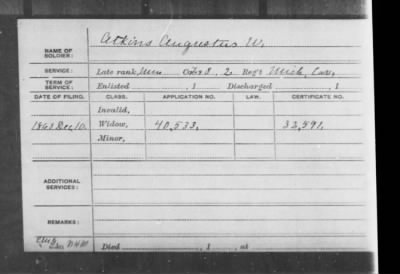 NAME OF SOLDIER: Atkins Augustus W.
SERVICE: Late rank, Co. 2 Reg't Mich. Cav.
TERM OF SERVICE: Enlisted , 1 Discharged , 1
DATE OF FILING. CLASS. APPLICATION NO. LAW. CERTIFICATE NO.
Invalid,
1863 Dec. 10. Widow, 40,533. 32,591.
Minor,
ADDITIONAL SERVICES:
REMARKS:
Died , 1 , at